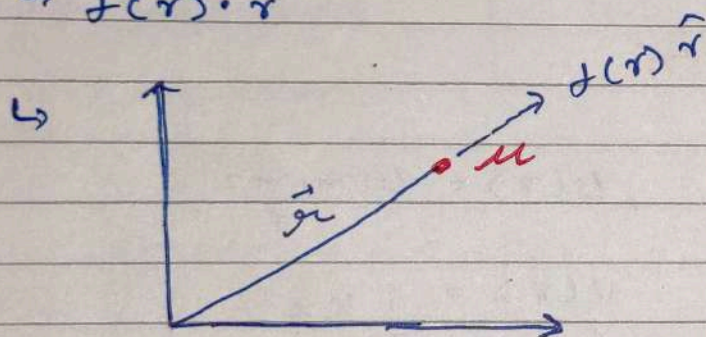 f(r) · r̂
↳
f(r) r̂
μ
r⃗